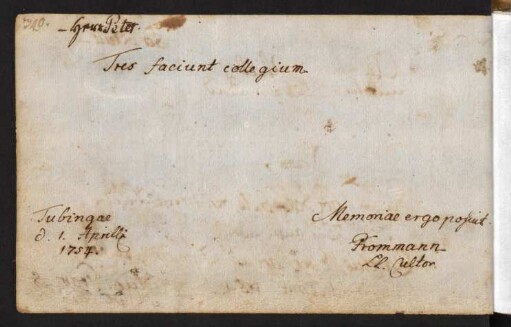 340.
Tres faciunt collegium
Tubingae
d. 1. Aprilis
1754.
Memoriae ergo posuit
Frommann
LL. Cultor.